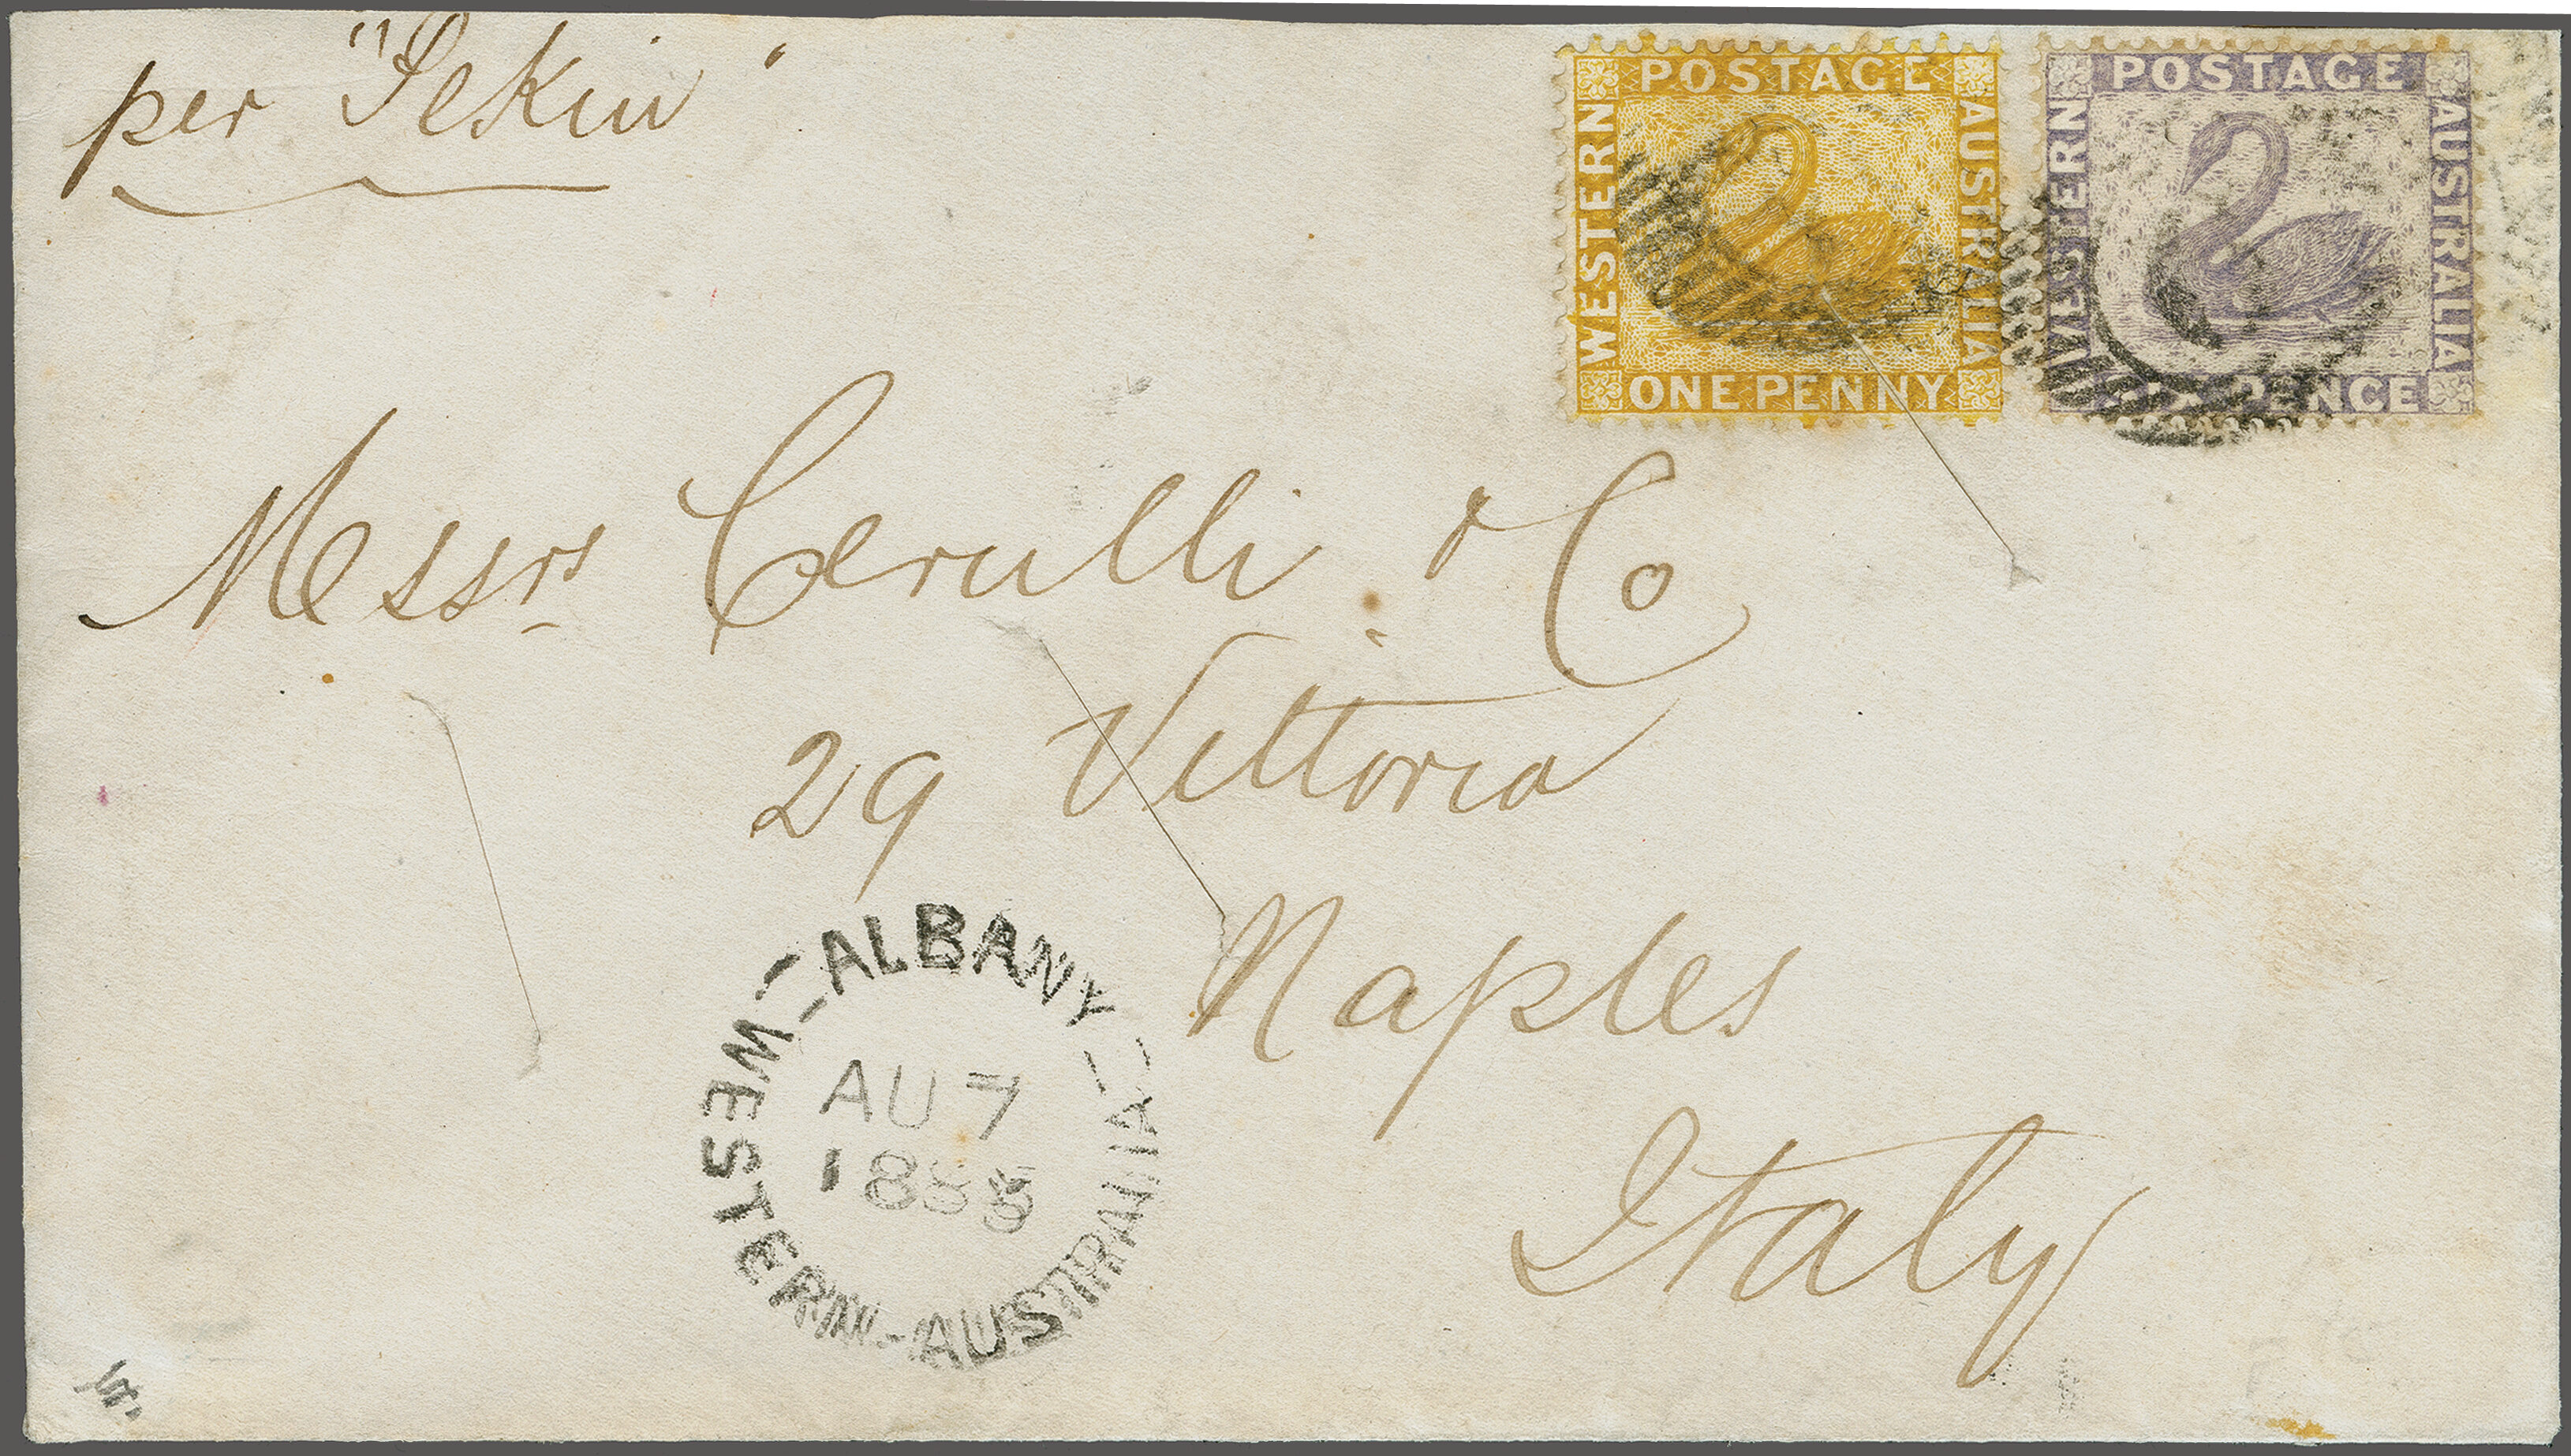 per "Pekin"
POSTAGE
WESTERN
AUSTRALIA
ONE PENNY
POSTAGE
WESTERN
AUSTRALIA
SIX PENCE
Messrs Cerulli & Co
29 Vittoria
Naples
Italy
ALBANY
AU 7
WESTERN-AUSTRALIA